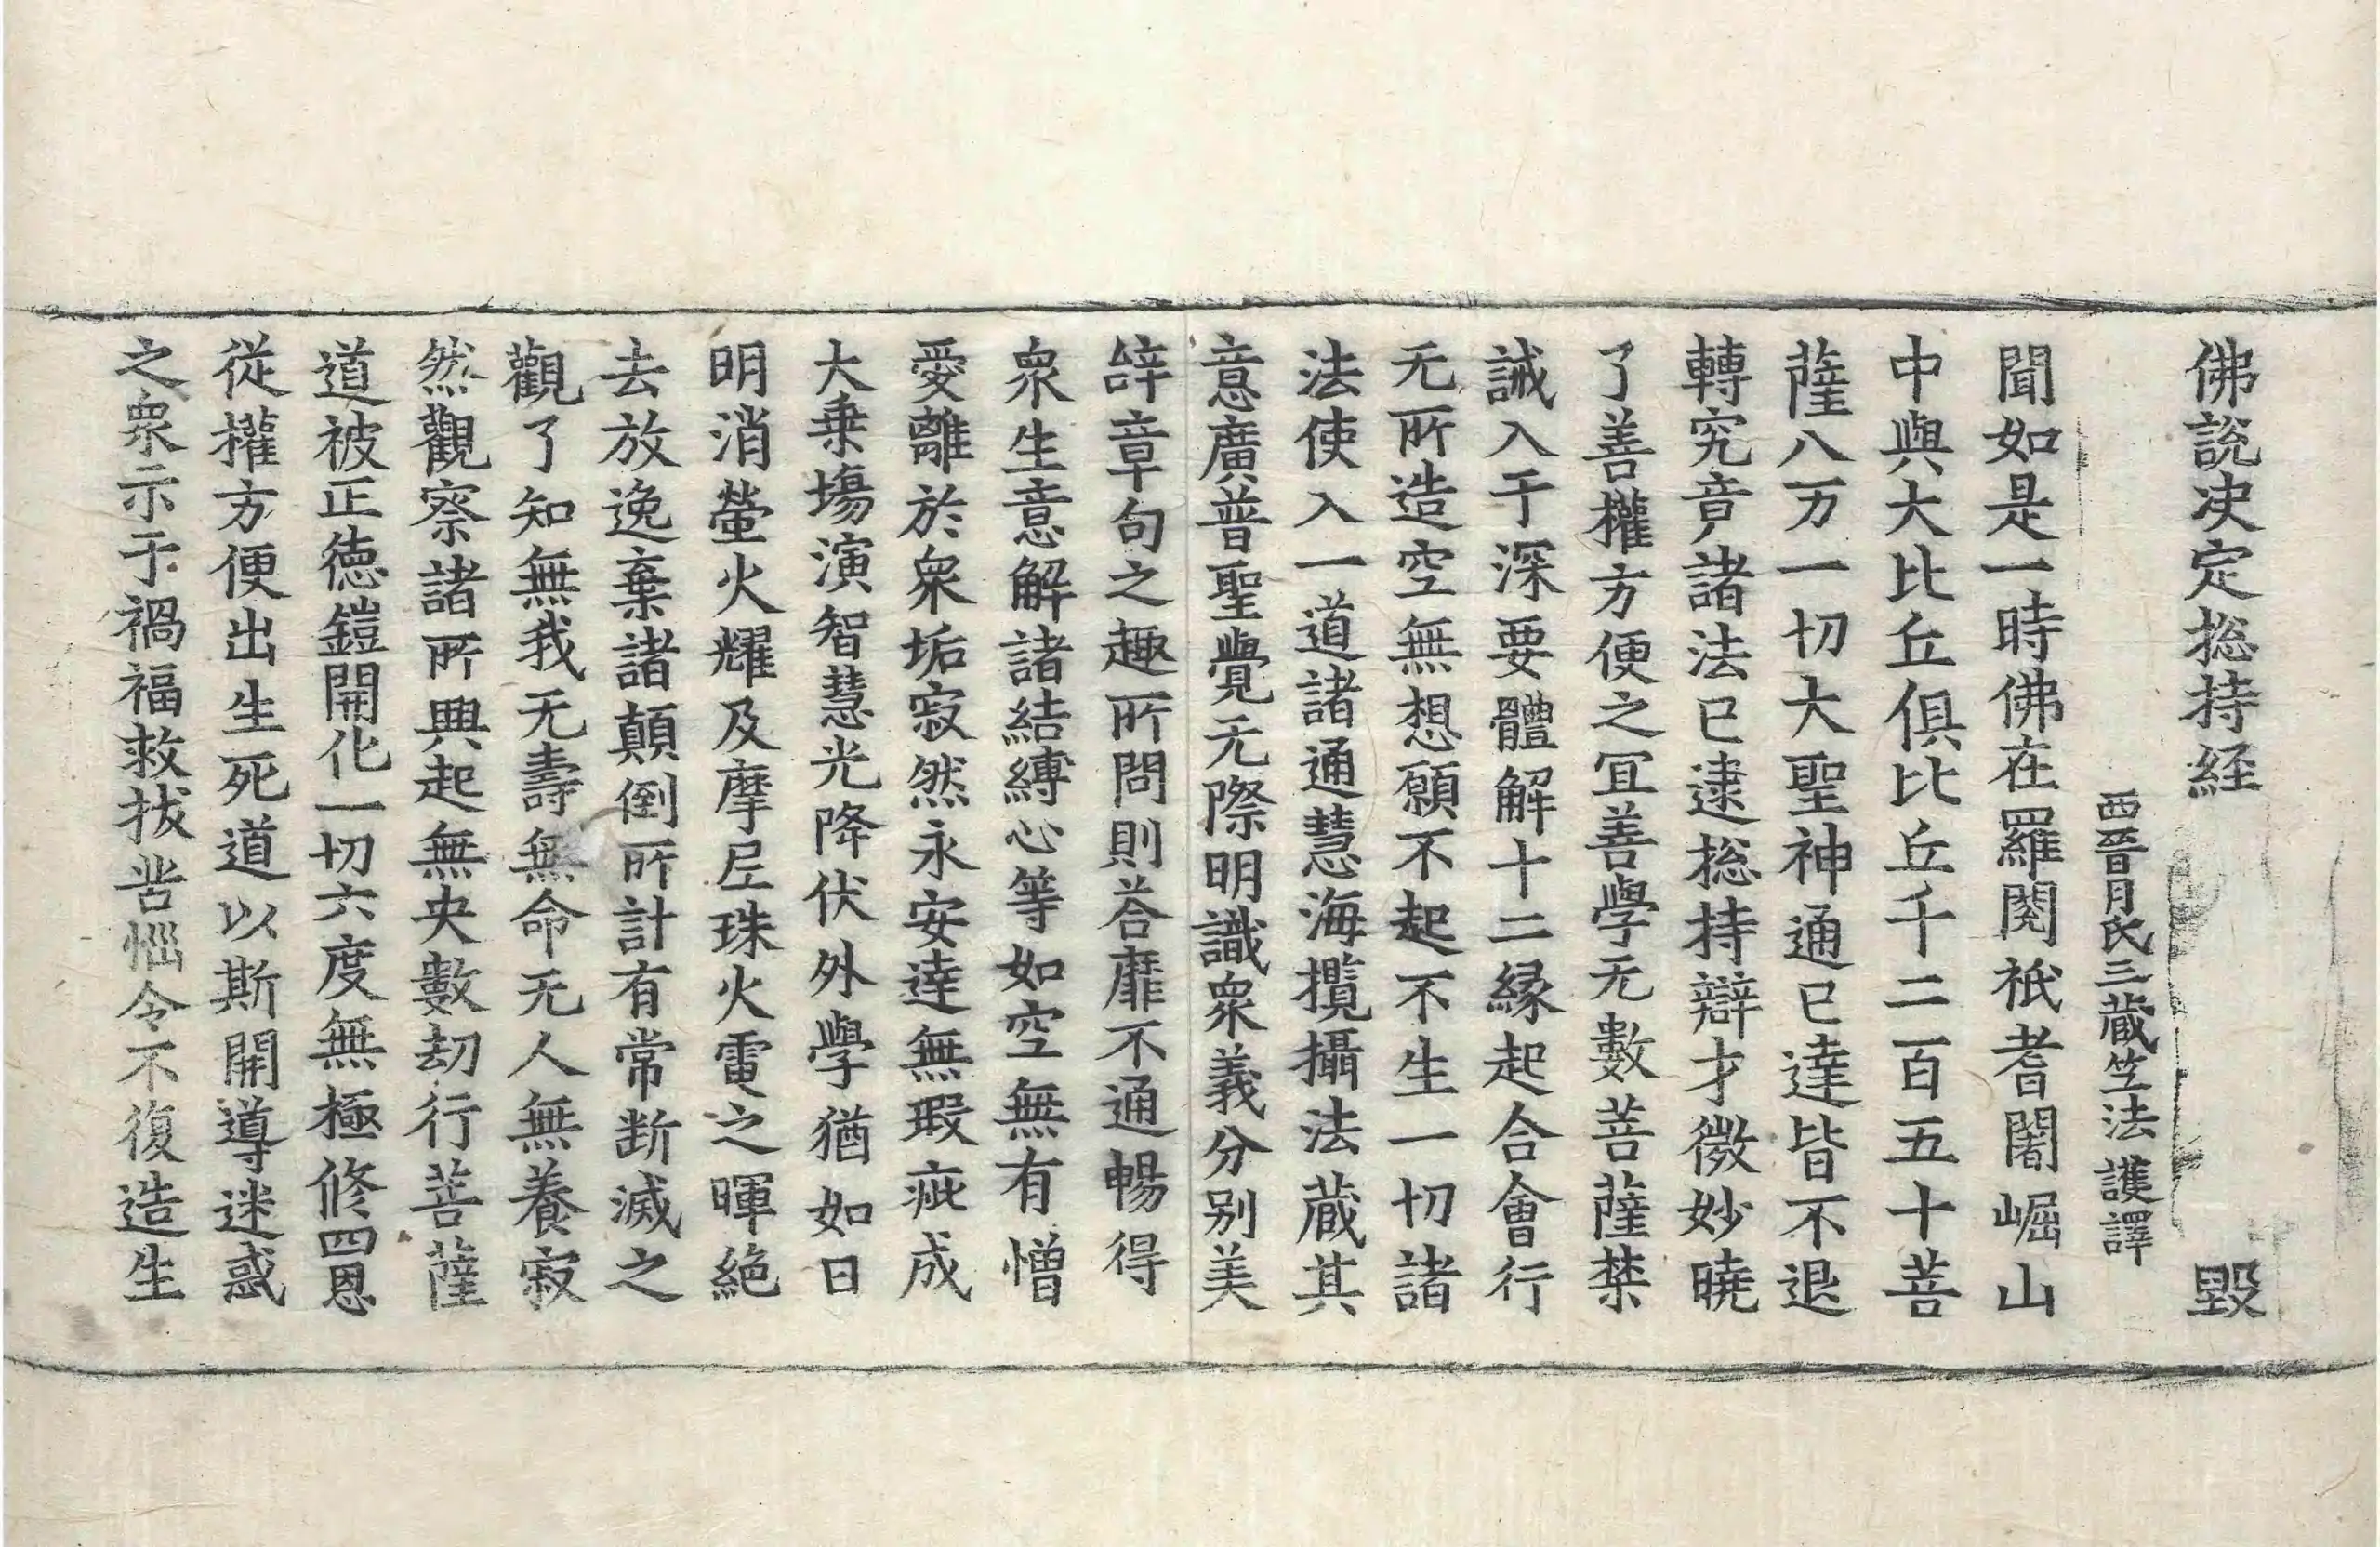 佛說决定捴持経 毀
西晉月氏三藏竺法護譯
聞如是一時佛在羅閱祇耆闍崛山
中與大比丘俱比丘千二百五十菩
薩八万一切大聖神通已達皆不退
轉究竟諸法已逮捴持辯才微妙曉
了善權方便之冝善學无數菩薩禁
誡入于深要體解十二緣起合會行
无所造空無想願不起不生一切諸
法使入一道諸通慧海攬攝法藏其
意廣普聖覺无際明識衆義分别美
辝章句之趣所問則荅靡不通暢得
衆生意解諸結縛心等如空無有憎
愛離於衆垢寂然永安逹無瑕疵成
大乗場演智慧光降伏外學猶如日
明消螢火耀及摩尼珠火電之暉絶
去放逸棄諸顛倒所計有常断滅之
觀了知無我无壽無命无人無養寂
然觀察諸所興起無央數劫行菩薩
道被正德鎧開化一切六度無極修四恩
從權方便出生死道以斯開導迷惑
之衆示于禍福救拔苦惱令不復造生